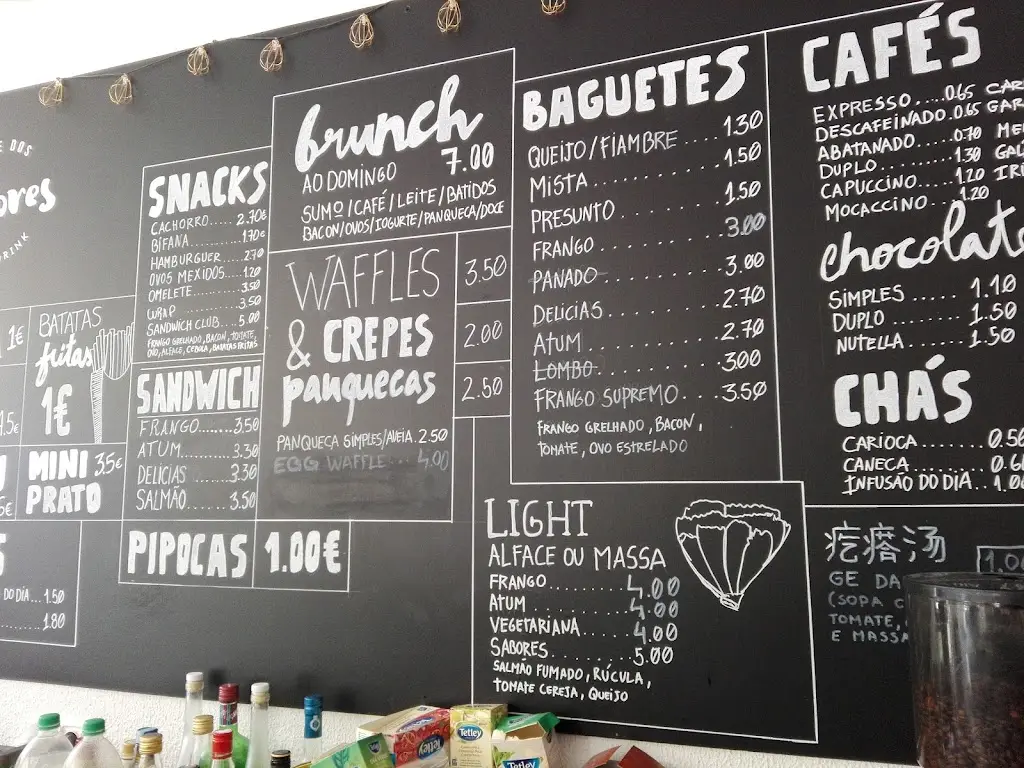 E DOS
ores
RINK
1€
BATATAS
fritas
1€
MINI
PRATO
3.5€
DO DIA...1.50
1.80
SNACKS
CACHORRO.....2.70€
BIFANA........1.70€
HAMBURGUER.....2.70
OVOS MEXIDOS....1.20
OMELETE.........3.50
WRAP............3.50
SANDWICH CLUB...5.00
FRANGO GRELHADO, BACON, TOMATE,
OVO, ALFACE, CEBOLA, BATATAS FRITAS
SANDWICH
FRANGO.......3.50
ATUM.........3.30
DELICIAS.....3.30
SALMÃO.......3.50
PIPOCAS 1.00€
brunch
AO DOMINGO 7.00
SUMO/CAFÉ/LEITE/BATIDOS
BACON/OVOS/IOGURTE/PANQUECA/DOCE
WAFFLES 3.50
& CREPES 2.00
panquecas 2.50
PANQUECA SIMPLES/AVEIA.2.50
EGG WAFFLE...4.00
BAGUETES
QUEIJO/FIAMBRE...1.30
MISTA............1.50
PRESUNTO.........1.50
FRANGO...........3.00
PANADO...........3.00
DELICIAS.........2.70
ATUM.............2.70
LOMBO............3.00
FRANGO SUPREMO...3.50
FRANGO GRELHADO, BACON,
TOMATE, OVO ESTRELADO
LIGHT
ALFACE OU MASSA
FRANGO..........4.00
ATUM............4.00
VEGETARIANA.....4.00
SABORES.........5.00
SALMÃO FUMADO, RÚCULA,
TOMATE CEREJA, QUEIJO
CAFÉS
EXPRESSO.....0.65
DESCAFEINADO.0.65
ABATANADO....0.70
DUPLO........1.30
CAPUCCINO....1.20
MOCACCINO....1.20
chocolate
SIMPLES......1.10
DUPLO........1.50
NUTELLA......1.50
CHÁS
CARIOCA.......
CANECA........
INFUSÃO DO DIA..
疙瘩汤
GE DA
(SOPA
TOMATE,
E MASSA
Tetley
Tetley
Tetley